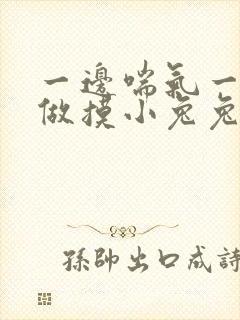 一邊喘氣一
做摸小兔兔
孫帥出口成詩